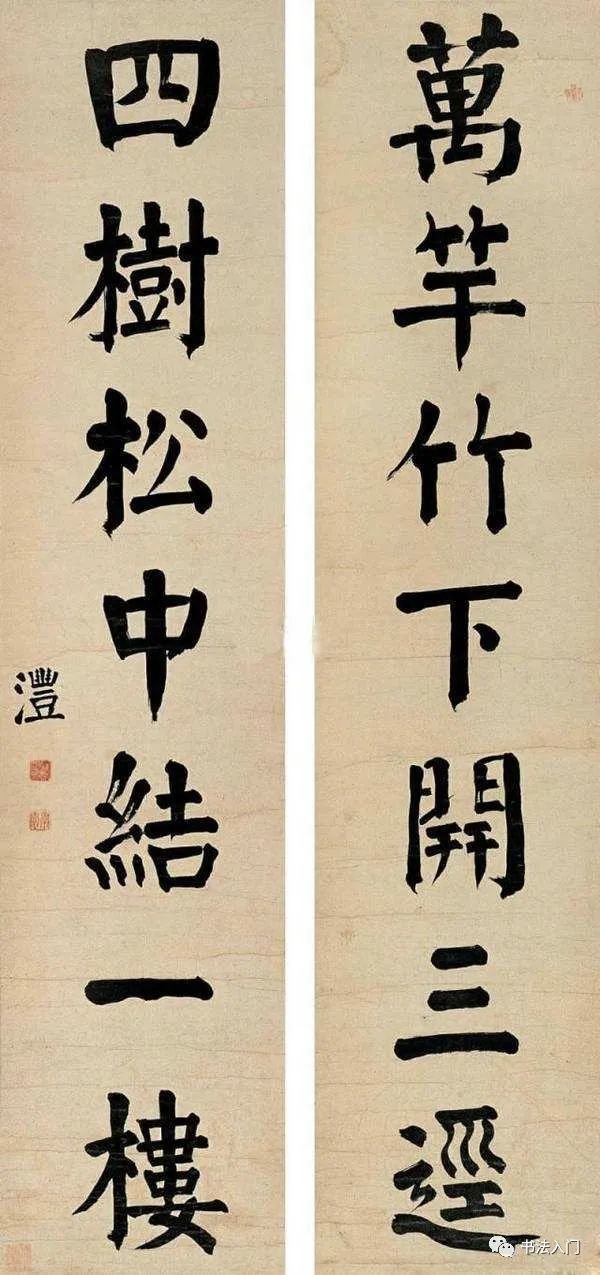 萬竿竹下開三逕
四樹松中結一樓
澧
书法入门